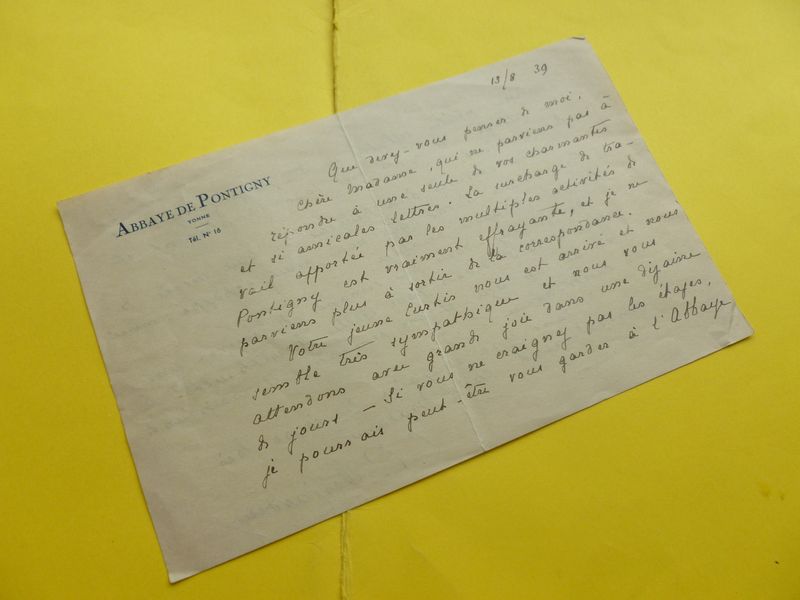 13/8 39
ABBAYE DE PONTIGNY
YONNE
Tél. N° 16
Que devez-vous penser de moi,
chère Madame, qui ne parviens pas à
répondre à une seule de vos charmantes
et si amicales lettres. La surcharge de tra-
vail apportée par les multiples activités de
Pontigny est vraiment effrayante, et je ne
parviens plus à sortir de la correspondance.
Votre jeune Curtis nous est arrivé et nous
semble très sympathique et nous vous
attendons avec grand joie dans une dizaine
de jours — Si vous ne craignez pas les étages,
je pourrais peut-être vous garder à l'Abbaye